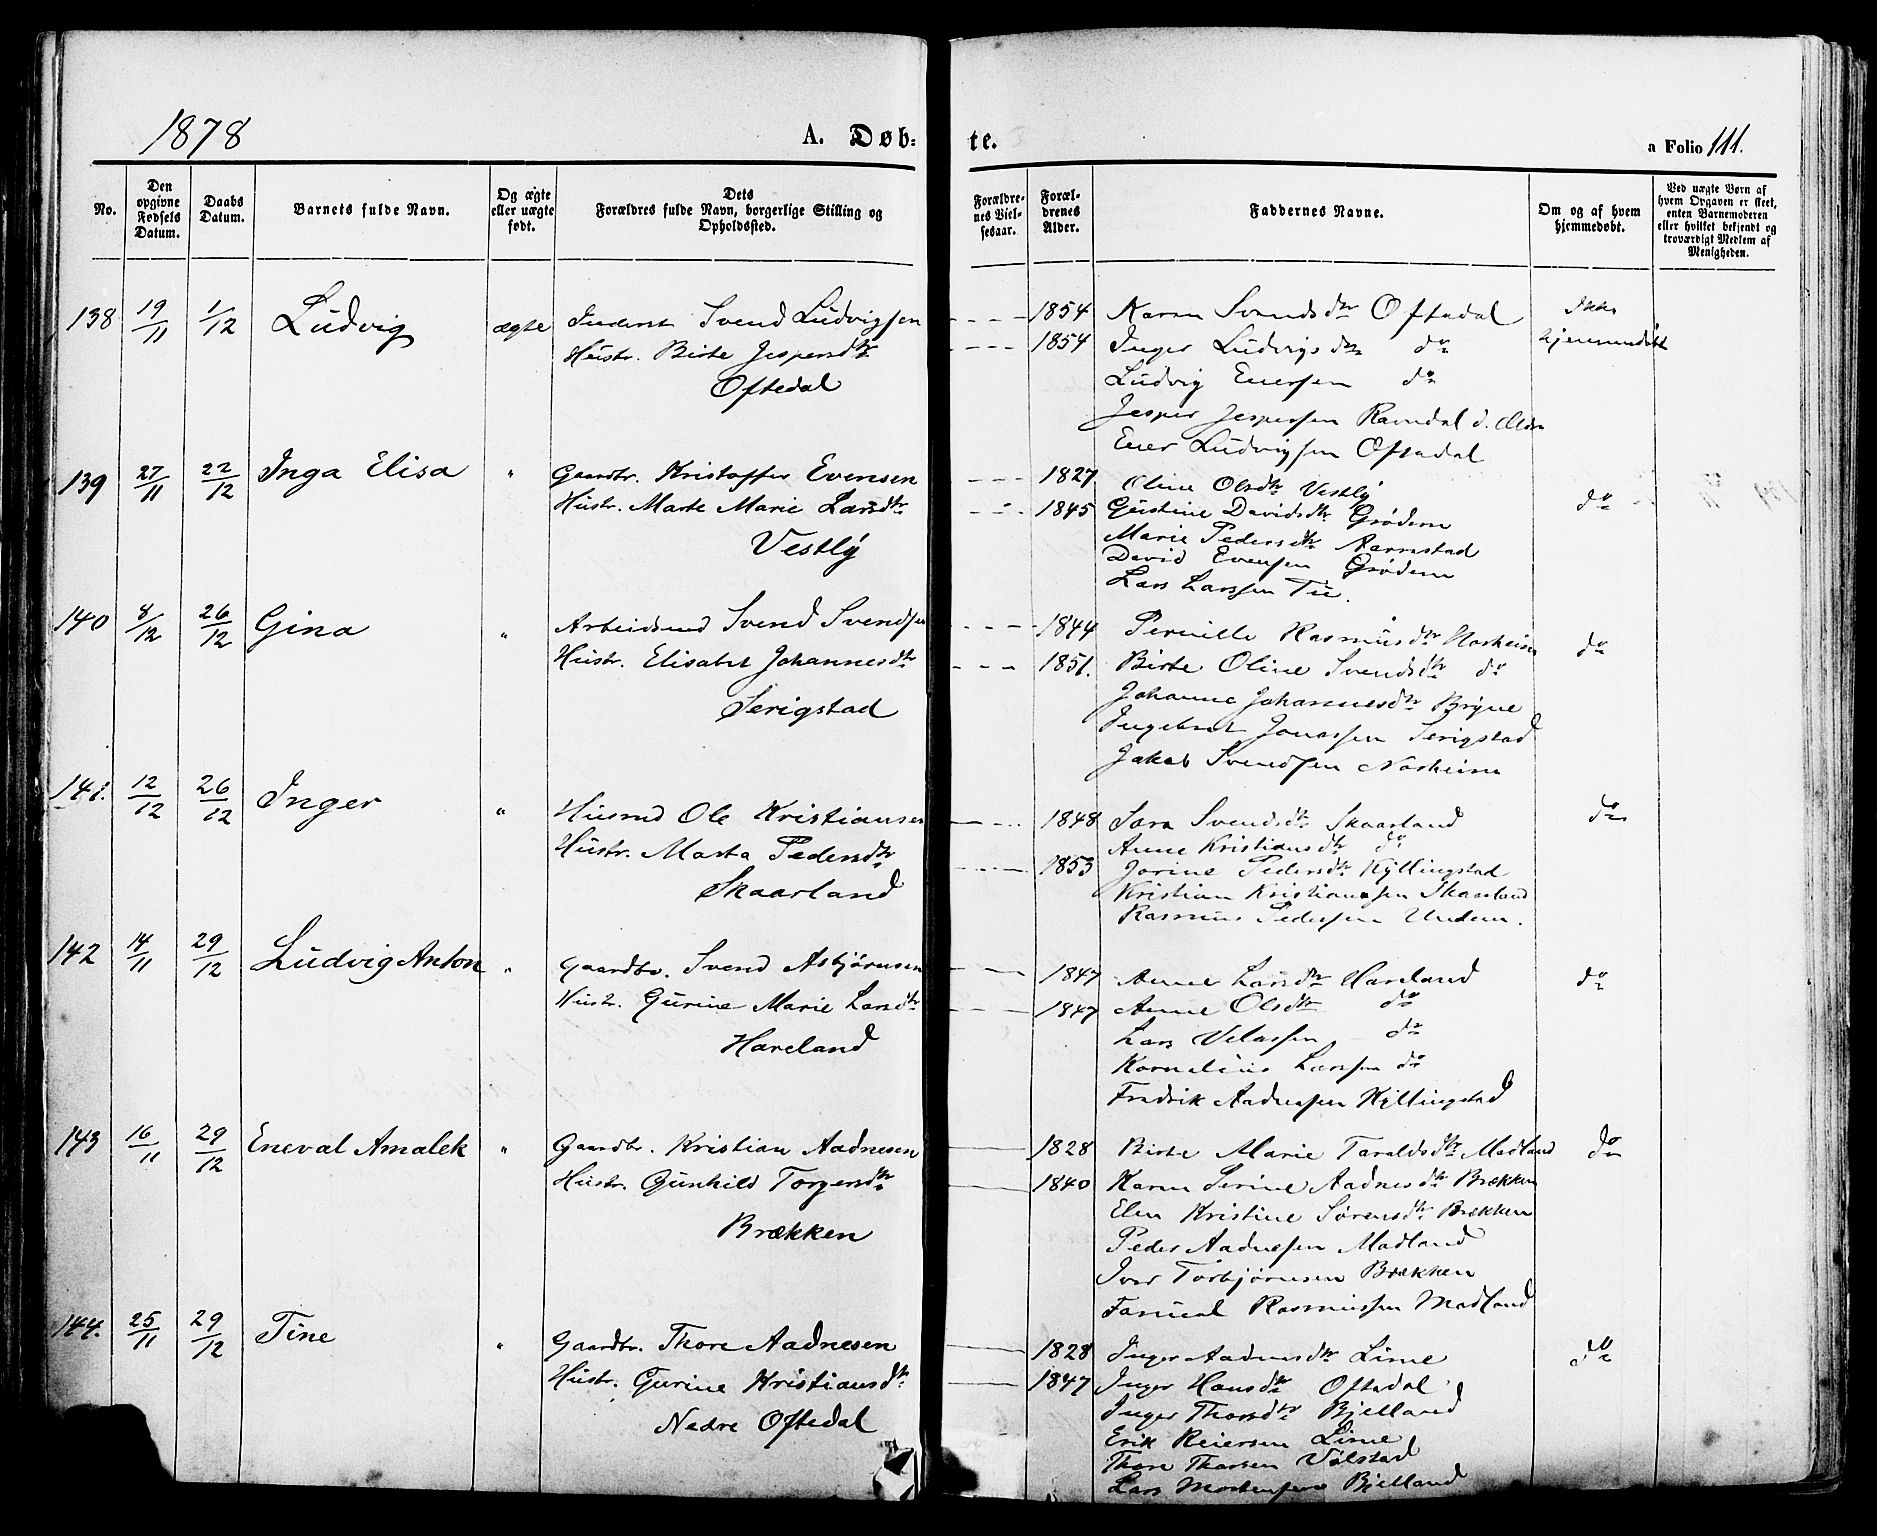 1878
A. Døb-
te.
a Folio 111.
No.
Den opgivne Fødsels Datum.
Daabs Datum.
Barnets fulde Navn.
Og ægte eller uægte født.
Dets Forældres fulde Navn, borgerlige Stilling og Opholdssted.
Forældrenes Vielsesaar.
Forældrenes Alder.
Faddernes Navne.
Om og af hvem hjemmedøbt.
Ved uægte Børn af hvem Opgaven er skeet, enten Barnemoderen eller hvilket bekjendt og troværdigt Medlem af Menigheden.
138 19/11 1/12 Ludvig ægte Inderst Svend Ludvigsen
Hustr. Birte Jespersdtr
Oftedal
1854 Karen Svendsdtr Oftedal Ikke
1854 Inger Ludvigsdtr do hjemmedøbt
Ludvig Enersen do
Jesper Jespersen Ravndal
Ener Ludvigsen Oftedal
139 27/11 22/12 Inga Elisa " Gaardbr. Kristoffer Evensen
Hustr. Marte Marie Larsdtr
Vestly
1827 Oline Olsdtr Vestly
1845 Gustine Davidsdtr Grødem do
Marie Pedersdtr Aarrestad
David Evensen Grødem
Lars Larssen Tu.
140 8/12 26/12 Gina " Arbeidsmd Svend Svendsen
Hustr. Elisabet Johannesdtr
Serigstad
1844 Pernille Rasmusdtr Norheim do
1851. Birte Oline Svendsdtr do
Johanne Johannesdtr Bryne
Ingebret Jonassen Serigstad
Jakob Svendsen Norheim
141. 12/12 26/12 Inger " Husmd Ole Kristiansen
Hustr. Marta Pedersdtr
Skaarland
1848 Sara Svendsdtr Skaarland do
Anne Kristiansdtr do
1853 Jorine Pedersdtr Kyllingstad
Kristian Kristiansen Skaarland
Rasmus Pedersen Undem.
142 14/11 29/12 Ludvig Anton " Gaardbr. Svend Asbjørnsen
Hustr. Gurine Marie Larsdtr
Hareland
1847 Anne Larsdtr Hareland do
1847 Anne Olsdtr do
Lars Velassen do
Kornelius Larssen do
Fredrik Aadnesen Kyllingstad
143 16/11 29/12 Eneval Amalek " Gaardbr. Kristian Aadnesen
Hustr. Gunhild Torgersdtr
Brækken
1828 Birte Marie Taraldsdtr Madland do
1840 Karen Serine Aadnesdtr Brækken
Elen Kristine Sørensdtr Brækken
Peder Aadnesen Madland
Iver Torbjørnsen Brækken
Rasmussen Madland
144. 25/11 29/12 Tine " Gaardbr. Thore Aadnesen
Hustr. Gurine Kristiansdtr
Nedre Oftedal
1828 Inger Aadnesdtr Lime do
1847 Inger Hansdtr Oftedal
Inger Thorsdtr Bjelland
Erik Reiersen Lime
Thore Thorsen Vølstad
Lars Mortensen Bjelland